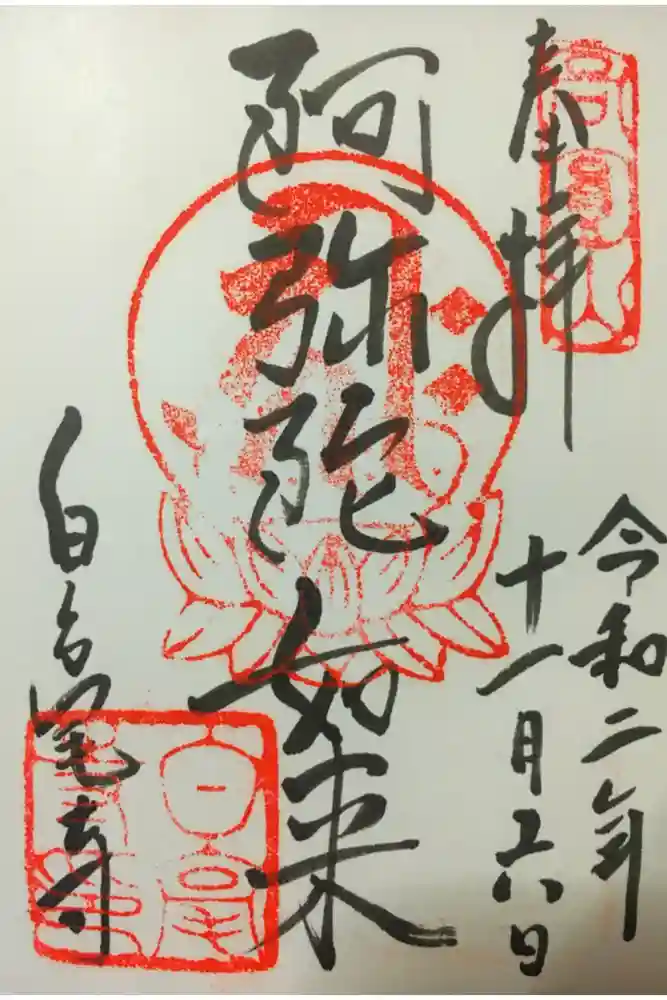 奉拝
令和二年
十一月
阿弥陀如来
白毫寺
高圓山